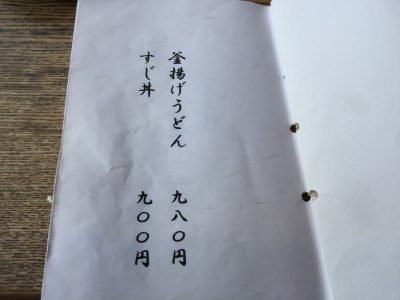 釜揚げうどん 九八〇円
すじ丼 九〇〇円